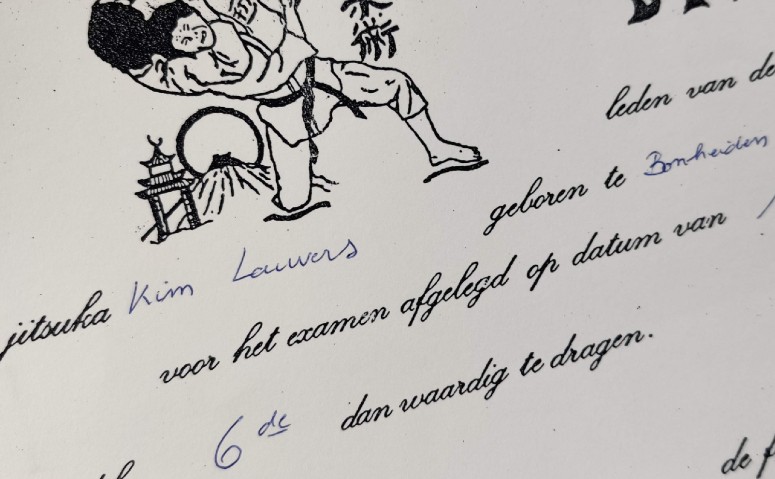 術
leden van de
geboren te Bonheiden
jitsuka Kim Lauwers
voor het examen afgelegd op datum van
6 de dan waardig te dragen.
de